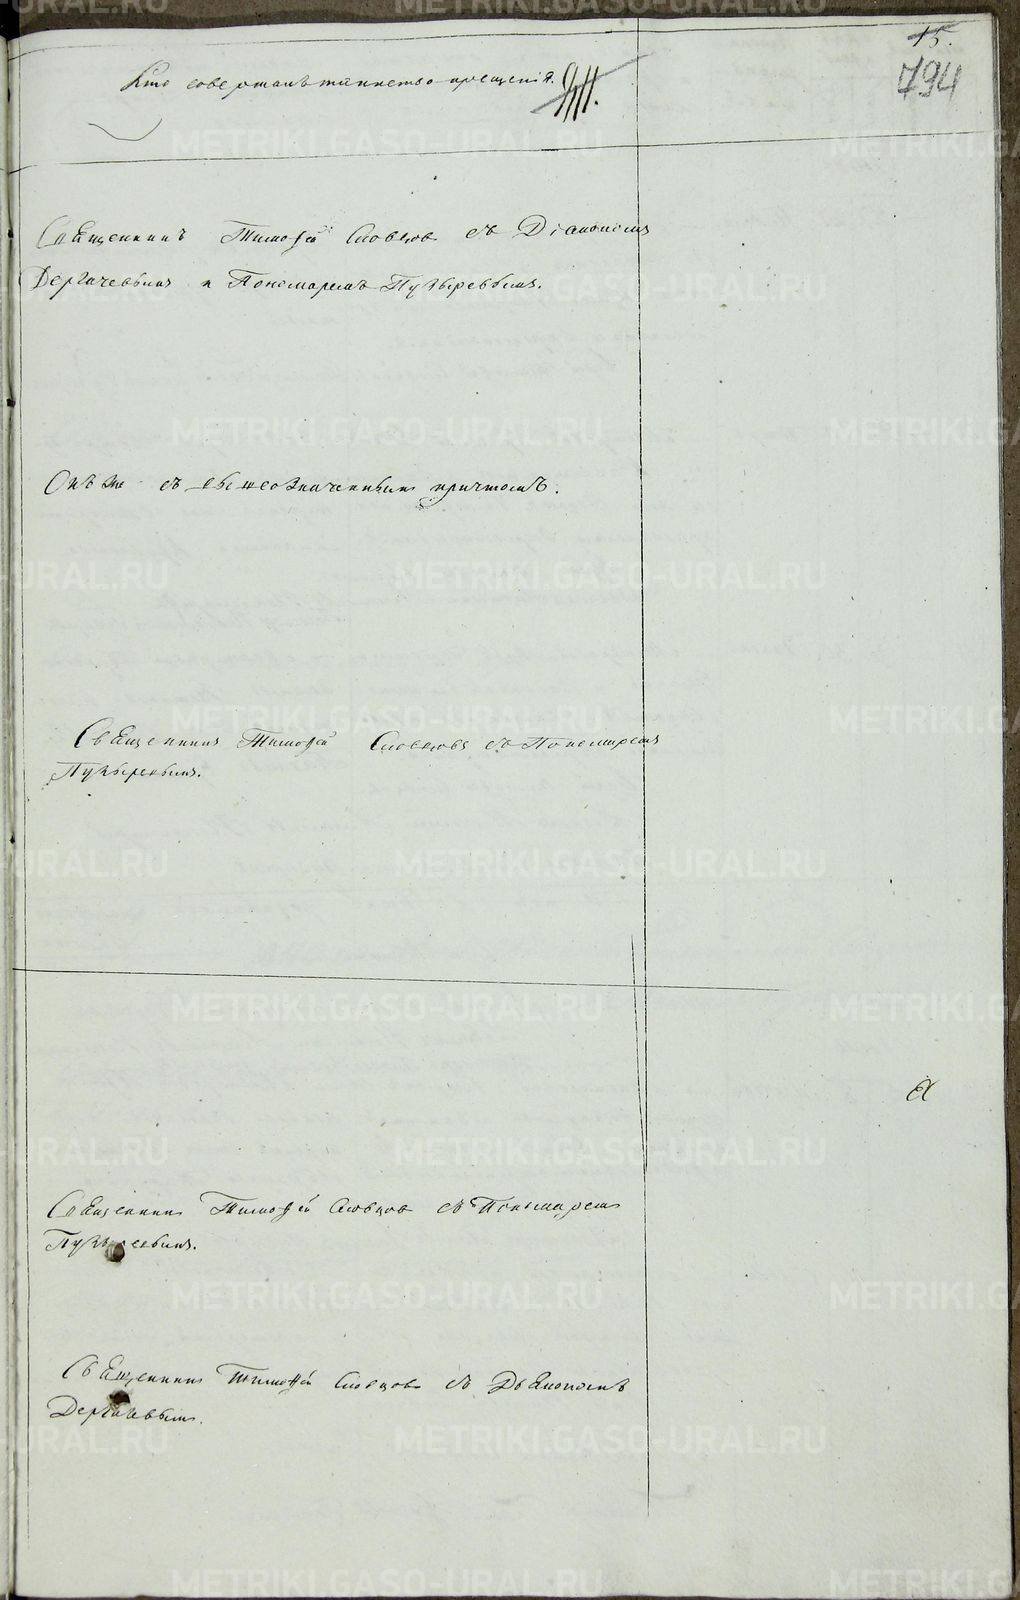 15.
794
Кто совершалъ таинство крещенія.
Священникъ Тимофей Словцов съ Діакономъ
Дергачевымъ и Пономаремъ Пузыревымъ.
Онъ же съ вышеозначеннымъ причтомъ.
Священникъ Тимофей Словцовъ съ Пономаремъ
Пузыревымъ.
Священникъ Тимофей Словцов съ Пономаремъ
Пузыревымъ.
Священникъ Тимофей Словцовъ съ Дьякономъ
Дергачевымъ.
METRIKI.GASO-URAL.RU